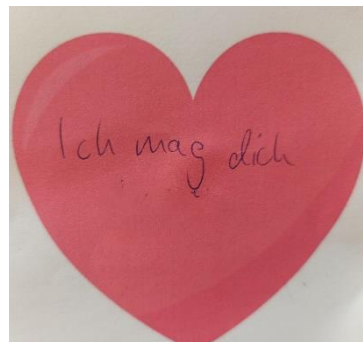 Ich mag dich